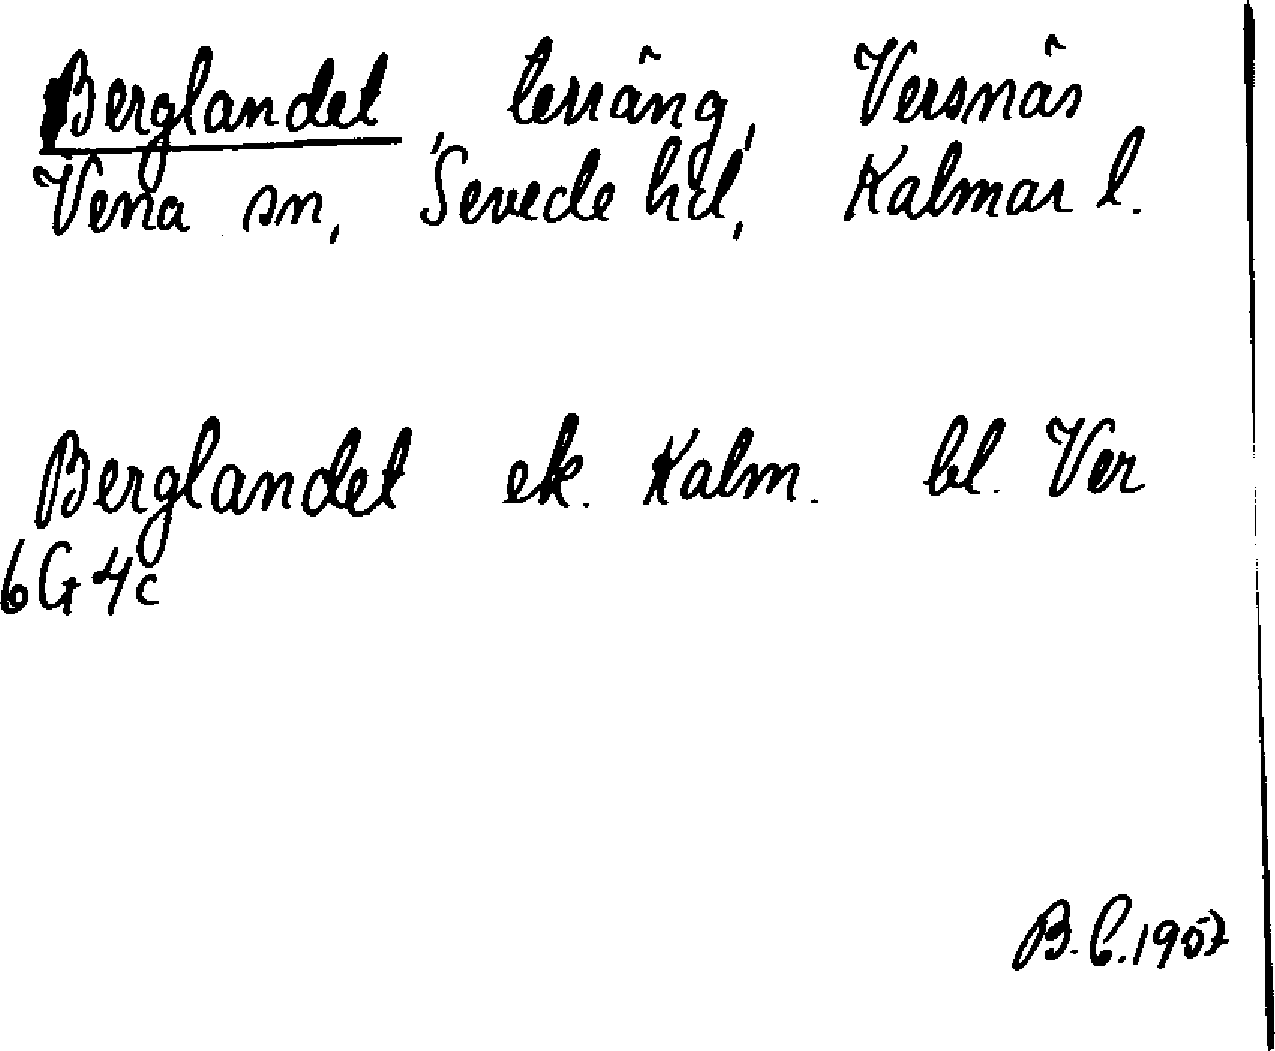 Berglandet, terräng, Versnäs
Vena sn, Sevede hd, Kalmar l.
Berglandet ek. Kalm. bl. Ver
6G4c
B.C.1957